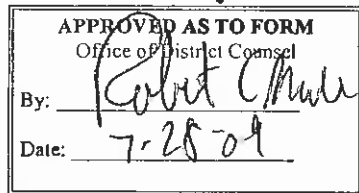 APPROVED AS TO FORM
Office of District Counsel
By: Robert C
Date: 7-28-09